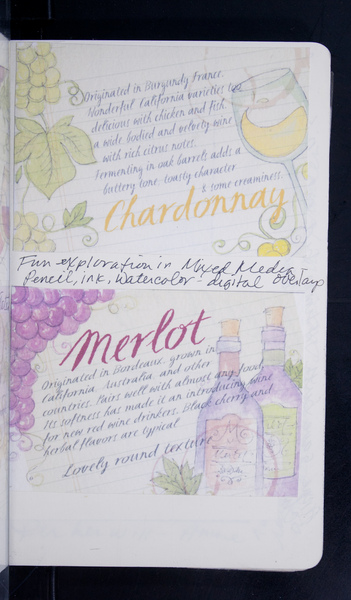 Originated in Burgundy France.
Wonderful California varieties too
delicious with chicken and fish.
a wide bodied and velvety wine
with rich citrus notes.
Fermenting in oak barrels adds a
buttery tone, toasty character
& some creaminess.
Chardonnay
Fun exploration in Mixed Media
Pencil, ink, watercolor - digital overlays
Merlot
Originated in Bordeaux, grown in
California, Australia, and other
countries. Pairs well with almost any food,
Its softness has made it an introducing wine
for new red wine drinkers. Black cherry and
herbal flavors are typical
Lovely round texture